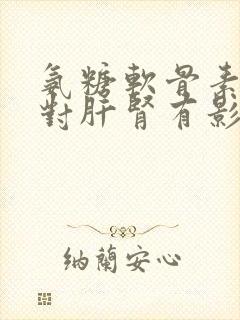 氨糖軟骨素
對肝腎有影
納蘭安心